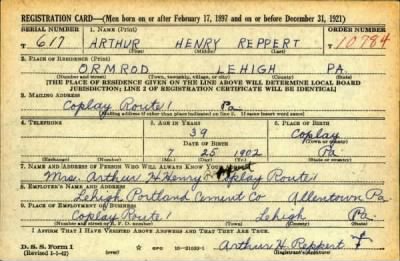 REGISTRATION CARD—(Men born on or after February 17, 1897 and on or before December 31, 1921)
SERIAL NUMBER 1. NAME (Print) ORDER NUMBER
T 617 ARTHUR HENRY REPPERT T 10784
(First) (Middle) (Last)
2. PLACE OF RESIDENCE (Print)
ORMROD LEHIGH PA.
(Number and street) (Town, township, village, or city) (County) (State)
[THE PLACE OF RESIDENCE GIVEN ON THE LINE ABOVE WILL DETERMINE LOCAL BOARD
JURISDICTION; LINE 2 OF REGISTRATION CERTIFICATE WILL BE IDENTICAL]
3. MAILING ADDRESS
Coplay Route 1 Pa
[Mailing address if other than place indicated on line 2. If same insert word same]
4. TELEPHONE 5. AGE IN YEARS 6. PLACE OF BIRTH
39 Coplay
DATE OF BIRTH (Town or county)
7 25 1902 Pa
(Exchange) (Number) (Mo.) (Day) (Yr.) (State or country)
7. NAME AND ADDRESS OF PERSON WHO WILL ALWAYS KNOW YOUR ADDRESS
Mrs. Arthur H Henry Coplay Route 1
8. EMPLOYER'S NAME AND ADDRESS
Lehigh Portland Cement Co Allentown Pa.
9. PLACE OF EMPLOYMENT OR BUSINESS
Coplay Route 1 Lehigh Pa
(Number and street or R. F. D. number) (Town) (County) (State)
I AFFIRM THAT I HAVE VERIFIED ABOVE ANSWERS AND THAT THEY ARE TRUE.
D. S. S. Form 1
(Revised 1-1-42) (over) GPO 16—21630-1 Arthur H. Reppert
(Registrant's signature)